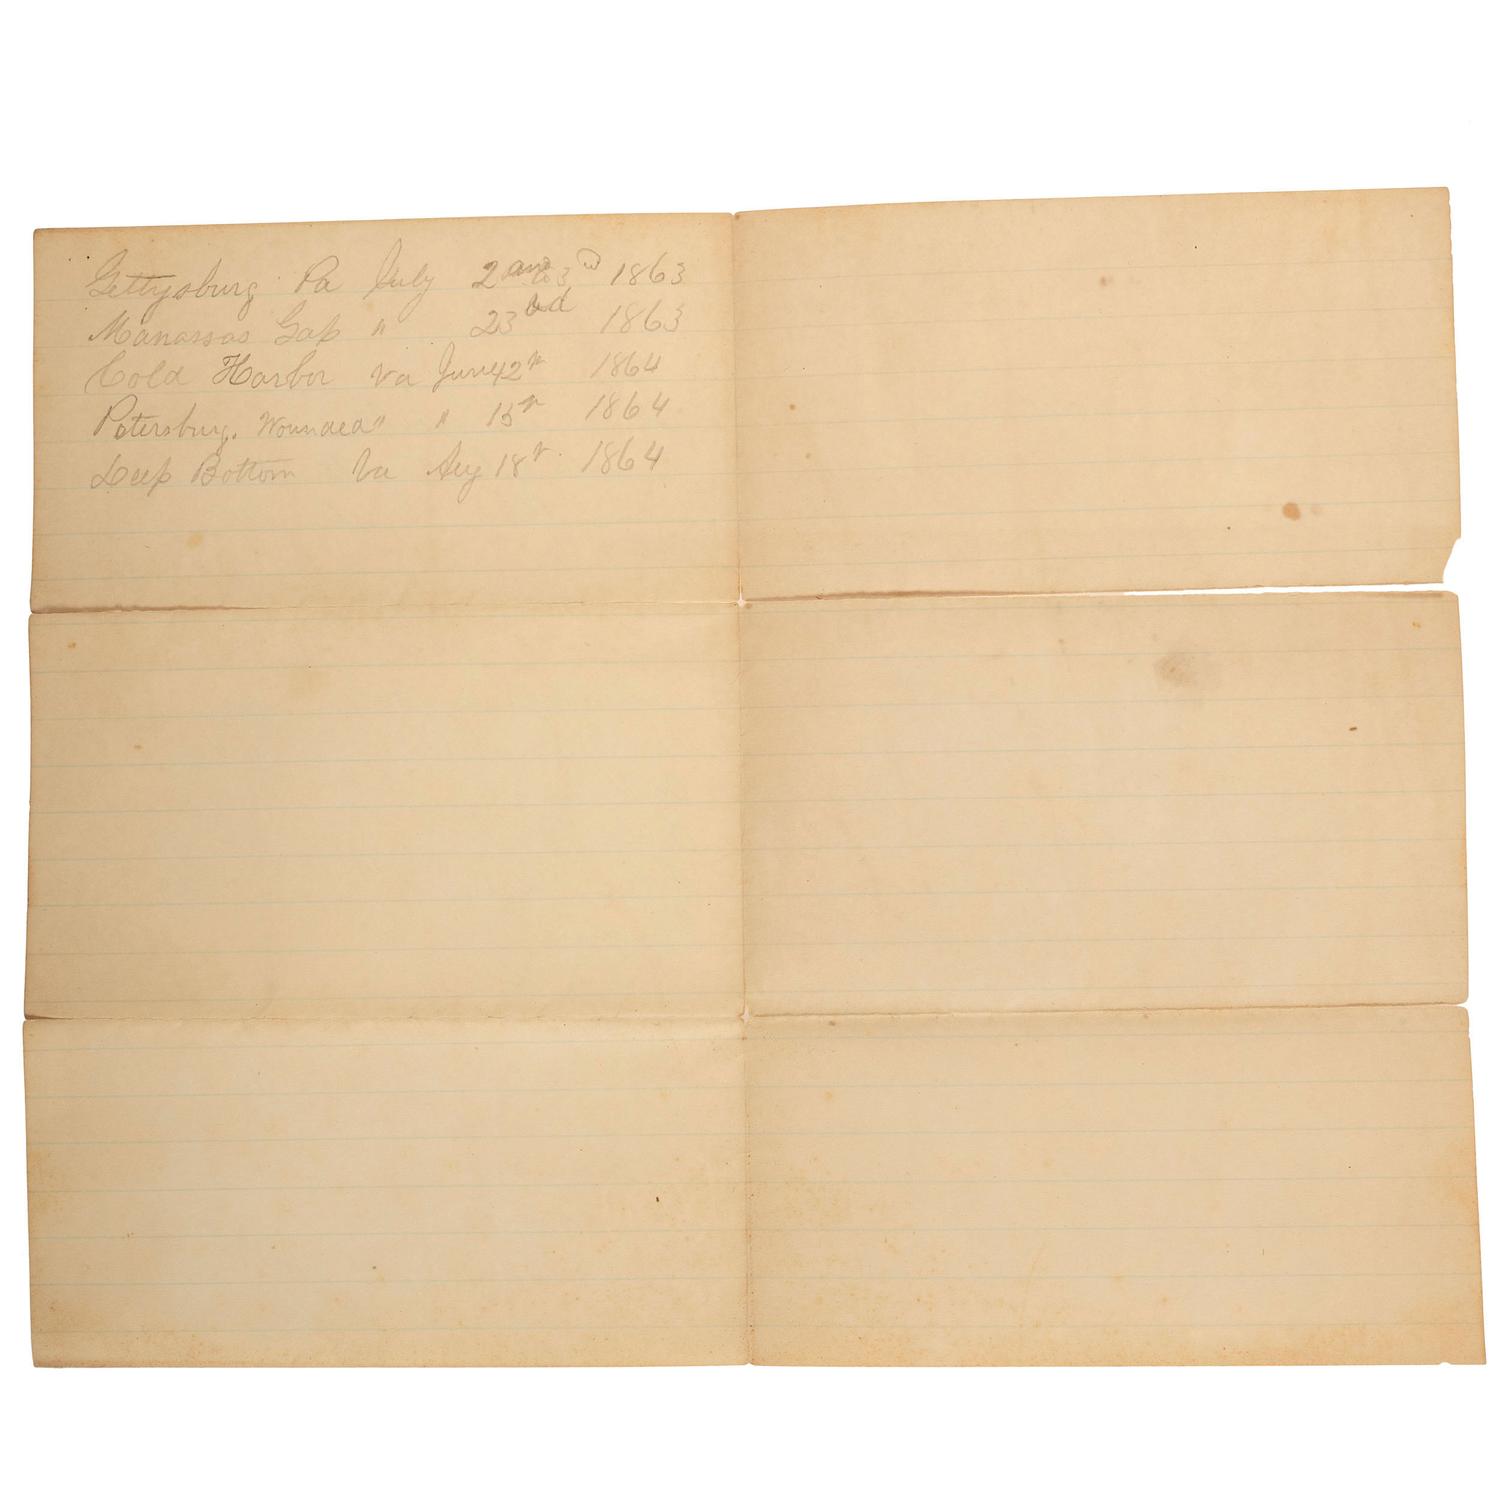 Gettysburg Pa July 2 and 3d 1863
Manassas Gap " 23rd 1863
Cold Harbor Va June 2n 1864
Petersburg, Wounded " " 15n 1864
Deep Bottom Va Aug 18n. 1864